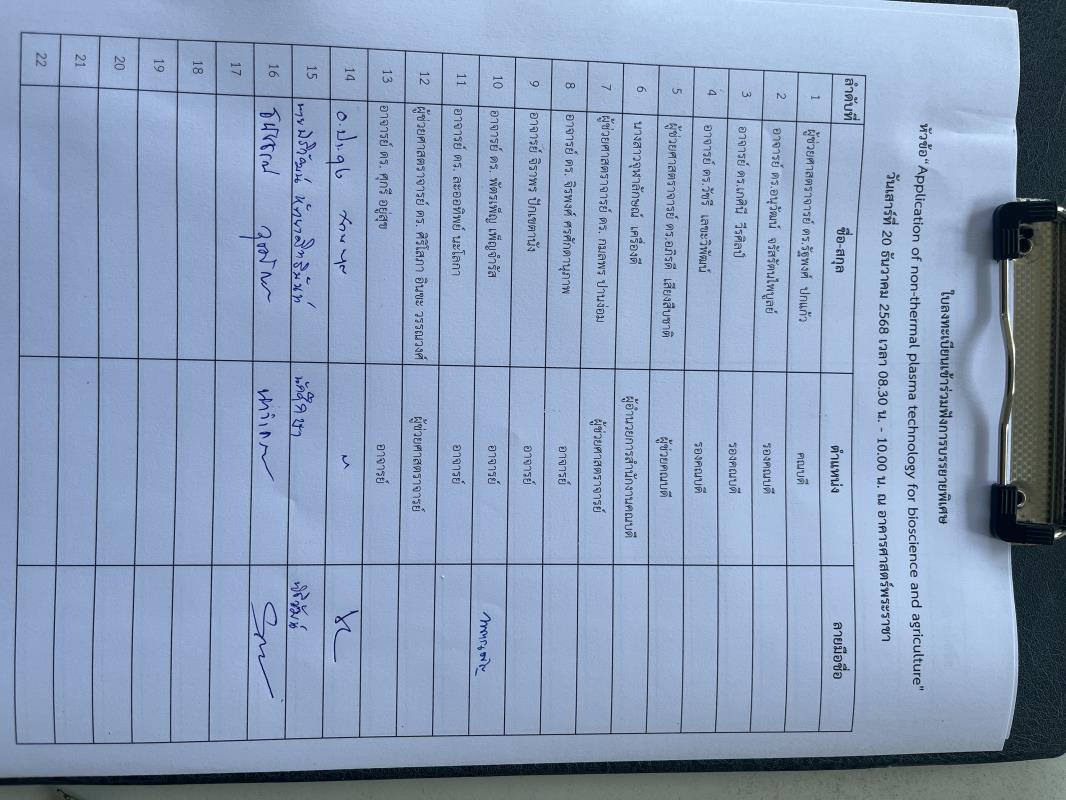 ใบลงทะเบียนเข้าร่วมฟังการบรรยายพิเศษ
หัวข้อ"Application of non-thermal plasma technology for bioscience and agriculture"
วันเสาร์ที่ 20 ธันวาคม 2568 เวลา 08.30 น. - 10.00 น. ณ อาคารศาสตร์พระราชา
ลำดับที่ ชื่อ-สกุล ตำแหน่ง ลายมือชื่อ
1 ผู้ช่วยศาสตราจารย์ ดร.รัฐพงศ์ ปกแก้ว คณบดี
2 อาจารย์ ดร.อนุวัฒน์ จรัสรัตนไพบูลย์ รองคณบดี
3 อาจารย์ ดร.เกศินี วีรศิลป์ รองคณบดี
4 อาจารย์ ดร.วัชรี เลขะวิพัฒน์ รองคณบดี
5 ผู้ช่วยศาสตราจารย์ ดร.อภิรดี เสียงสืบชาติ ผู้ช่วยคณบดี
6 นางสาวจุฬาลักษณ์ เครื่องดี ผู้อำนวยการสำนักงานคณบดี
7 ผู้ช่วยศาสตราจารย์ ดร. กมลพร ปานง่อม ผู้ช่วยศาสตราจารย์
8 อาจารย์ ดร. จิรพงศ์ ศรศักดานุภาพ อาจารย์
9 อาจารย์ จิราพร ปักเขตานัง อาจารย์
10 อาจารย์ ดร. พัตรเพ็ญ เพ็ญจำรัส อาจารย์
11 อาจารย์ ดร. ละออทิพย์ นะโลกา อาจารย์
12 ผู้ช่วยศาสตราจารย์ ดร. ศิริโสภา อินขะ วรรณวงศ์ ผู้ช่วยศาสตราจารย์
13 อาจารย์ ดร. ศุกรี อยู่สุข อาจารย์
14
15 นักศึกษา
16
17
18
19
20
21
22